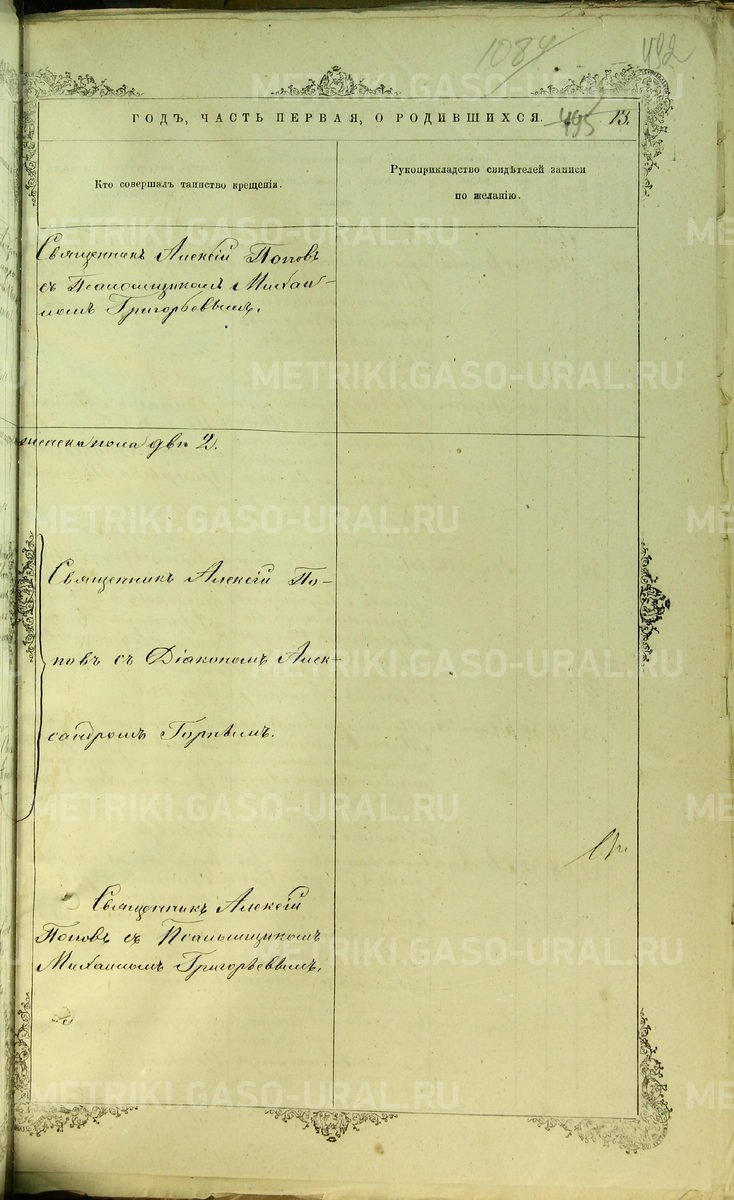 1084
492
ГОДЪ, ЧАСТЬ ПЕРВАЯ, О РОДИВШИХСЯ.
495
13.
Кто совершалъ таинство крещенія.
Рукоприкладство свидѣтелей записи
по желанію.
Священникъ Алексій Поповъ
съ Псаломщикомъ Михаи-
ломъ Григорьевымъ.
женска пола двѣ 2.
Священникъ Алексій По-
повъ съ Діакономъ Алек-
сандромъ Горнымъ.
Священникъ Алексій
Поповъ съ Псаломщикомъ
Михаиломъ Григорьевымъ.
METRIKI.GASO-URAL.RU